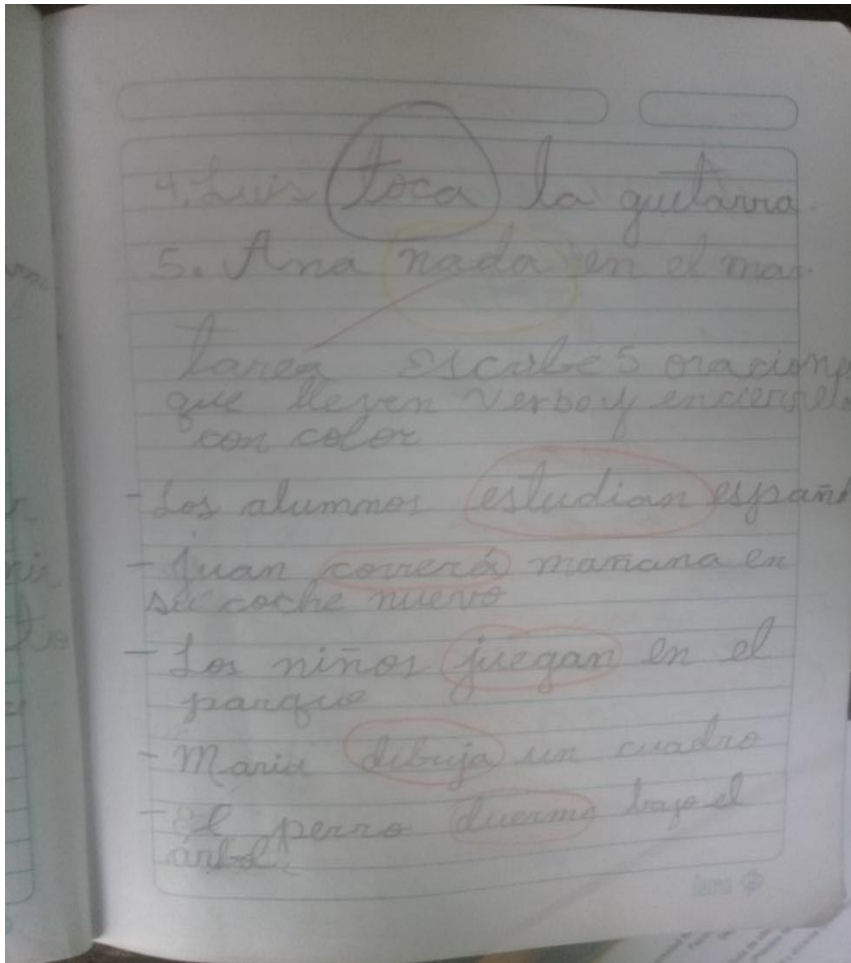 4. Luis toca la guitarra.
5. Ana nada en el mar.
tarea escribe 5 oraciones
que lleven verbo y encierrelo
con color
- Los alumnos estudian español
- Juan correrá mañana en
su coche nuevo
- Los niños juegan en el
parque
- Maria dibuja un cuadro
- El perro duerme bajo el
árbol.